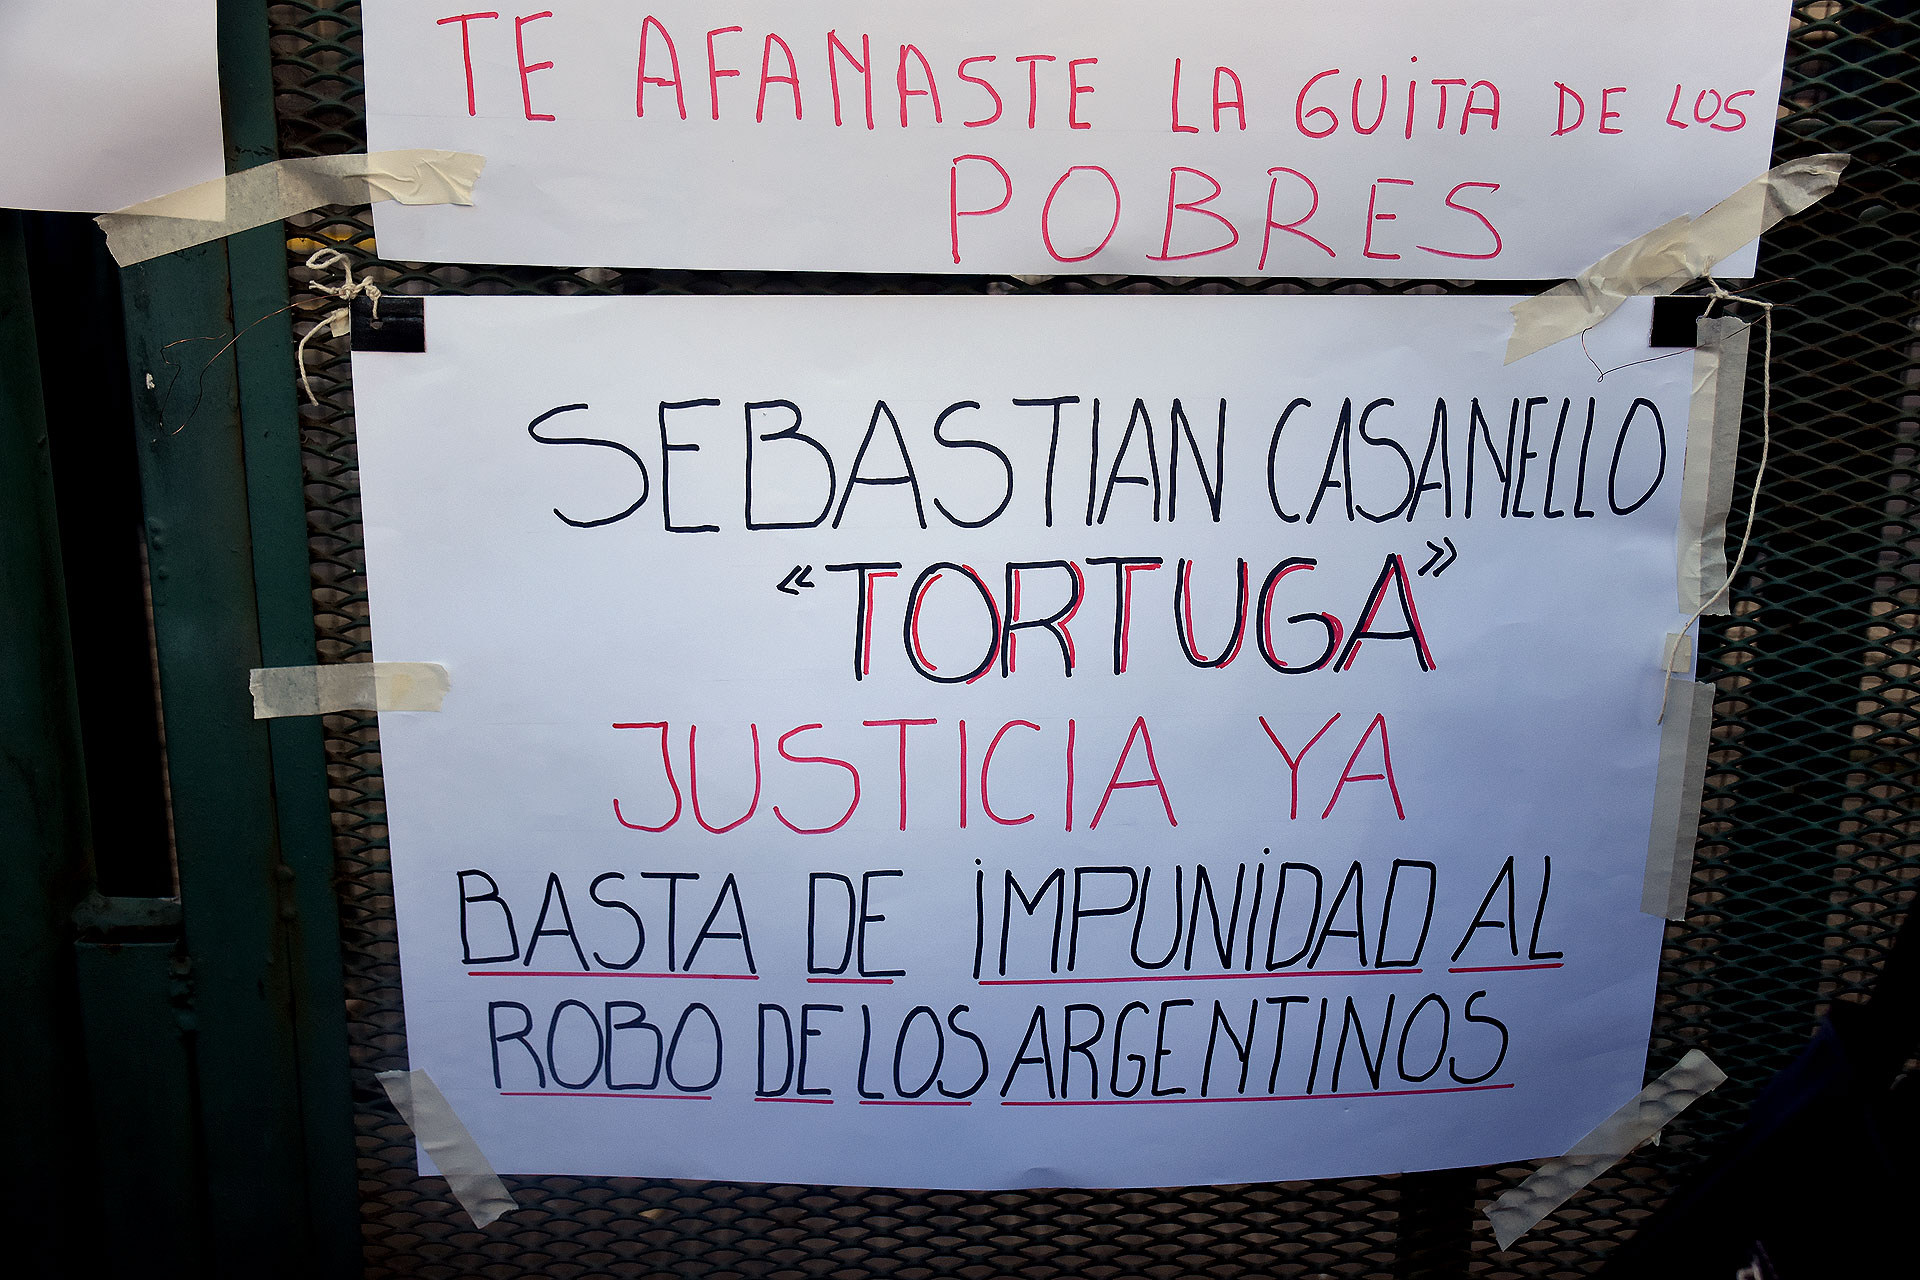 TE AFANASTE LA GUiTA DE LOS
POBRES
SEBASTIAN CASANELLO
«TORTUGA»
JUSTICIA YA
BASTA DE iMPUNiDAD AL
ROBO DE LOS ARGENTINOS